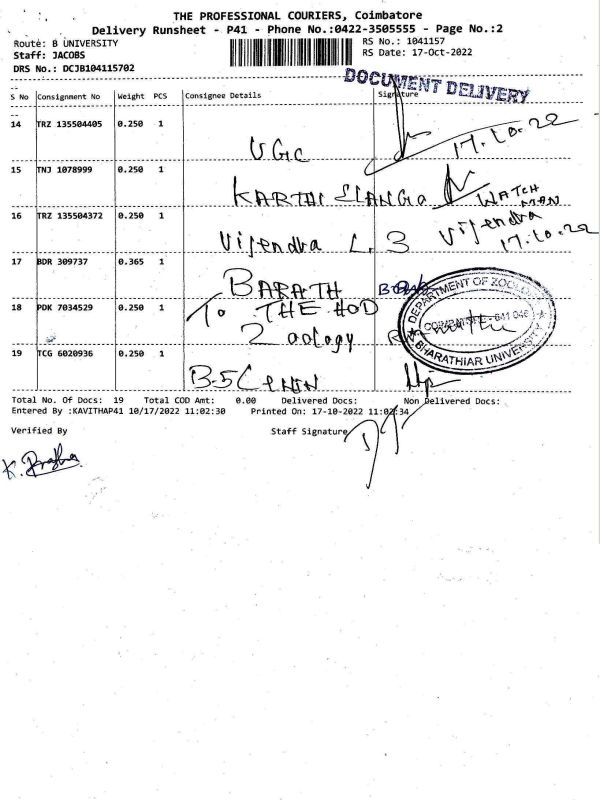 THE PROFESSIONAL COURIERS, Coimbatore
Delivery Runsheet - P41 - Phone No.:0422-3505555 - Page No.:2
Route: B UNIVERSITY RS No.: 1041157
Staff: JACOBS RS Date: 17-Oct-2022
DRS No.: DCJB104115702
DOCUMENT DELIVERY
S No Consignment No Weight PCS Consignee Details Signature
14 TRZ 135504405 0.250 1
UGC 17.10.22
15 TNJ 1078999 0.250 1
KARTHI WATCH
MAN
16 TRZ 135504372 0.250 1 Vijendra
Vijendra L. 3 17.10.22
17 BDR 309737 0.365 1
BARATH
18 PDK 7034529 0.250 1 To THE HOD
Zoology
DEPARTMENT OF ZOOLOGY
COIMBATORE - 641 046
BHARATHIAR UNIVERSITY
19 TCG 6020936 0.250 1
Total No. Of Docs: 19 Total COD Amt: 0.00 Delivered Docs: Non Delivered Docs:
Entered By :KAVITHAP41 10/17/2022 11:02:30 Printed On: 17-10-2022 11:02:34
Verified By Staff Signature